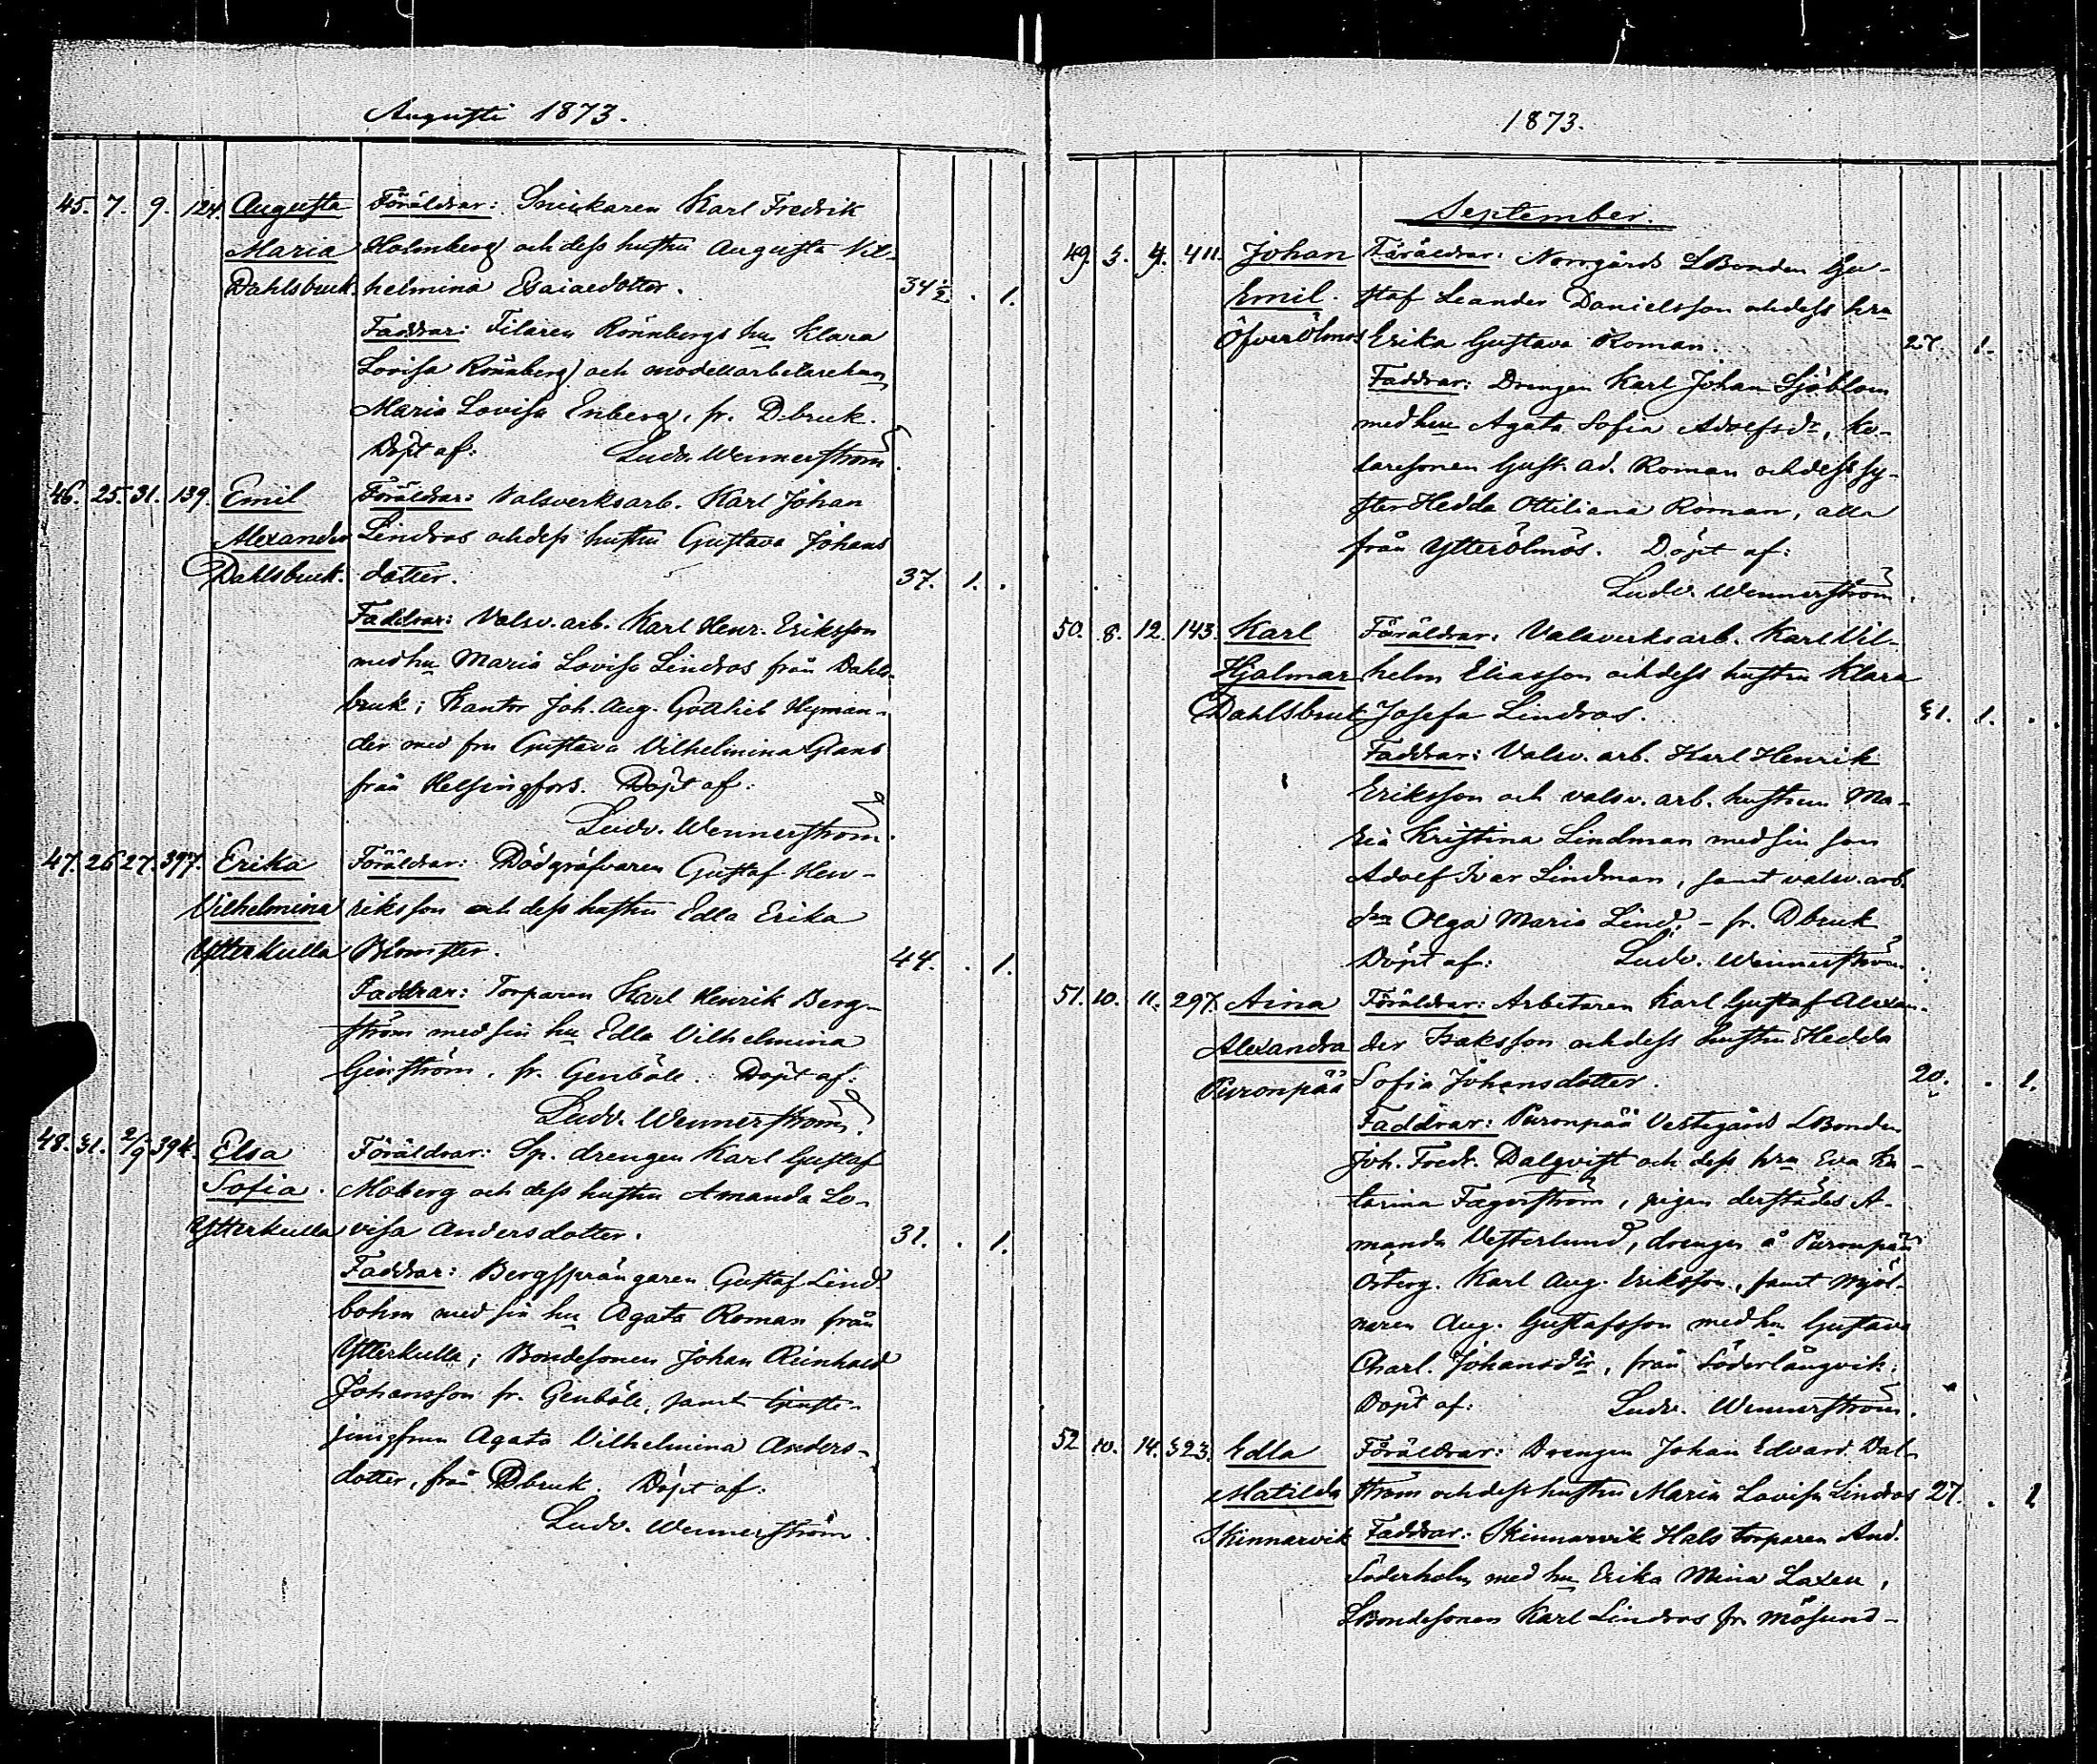 Augusti 1873.
45. 7. 9. 124. Augusta Föräldrar: Snickaren Karl Fredrik
Maria Holmberg och dess hustru Augusta Vil-
Dahlsbruk. helmina Esaiaedotter. 34½. . 1.
Faddrar: Filaren Rönnbergs hu Klara
Lovisa Rönnberg och modellarbetarehun
Maria Lovisa Enberg, fr. Dbruk.
Döpt af: Ludv. Wennerström.
46. 25. 31. 139. Emil Föräldrar: Valsverksarb. Karl Johan
Alexander Lindros och dess hustru Gustava Johans
Dahlsbruk. dotter. 37. 1. .
Faddrar: Valsv. arb. Karl Henr. Eriksson
med hu Maria Lovisa Lindros från Dahls-
bruk; Kantor Joh. Aug. Gottlieb Hyman-
der med fru Gustava Vilhelmina Glans
från Helsingfors. Döpt af:
Ludv. Wennerström.
47. 26 27. 397. Erika Föräldrar: Dödgräfvaren Gustaf Hen-
Vilhelmina riksson och dess hustru Edla Erika
Ytterkulla Blomster. 44. . 1.
Faddrar: Torparen Karl Henrik Berg-
ström med sin hu Edla Vilhelmina
Genström, fr. Genböle. Döpt af:
Ludv. Wennerström.
48. 31. 2/9 394. Elsa Föräldrar: Sp. drengen Karl Gustaf
Sofia. Moberg och dess hustru Amanda Lo-
Ytterkulla visa Andersdotter. 31. . 1.
Faddrar: Bergsprängaren Gustaf Lind-
bohm med sin hu Agata Roman från
Ytterkulla; Bondesonen Johan Reinhold
Johansson fr. Genböle, samt tjenste-
jungfrun Agata Vilhelmina Anders-
dotter, från Dbruk. Döpt af:
Ludv. Wennerström.
1873.
September.
49. 3. 4. 411. Johan Föräldrar: Norrgårds LBonden Gu-
Emil. staf Leander Danielsson och dess hru
Öfverölmos Erika Gustava Roman. 27. 1. .
Faddrar: Drengen Karl Johan Sjöblom
med hu Agata Sofia Adolfsdr,
Gust. Ad. Roman och dess sy-
ster Hedda Ottiliana Roman, alla
från Ytterölmos. Döpt af:
Ludv. Wennerström.
50. 8. 12. 143. Karl Föräldrar: Valsverksarb. Karl Vil-
Hjalmar helm Eliasson och dess hustru Klara
Dahlsbruk Josefa Lindros. 31. 1. .
Faddrar: Valsv. arb. Karl Henrik
Eriksson och valsv. arb. hustrun Ma-
ria Kristina Lindman med sin son
Adolf Ivar Lindman, samt valsv. arb.
Olga Maria Lind. - fr. Dbruk
Döpt af: Ludv. Wennerström.
51. 10. 11. 297. Aina Föräldrar: Arbetaren Karl Gustaf Alexan-
Alexandra der Isaksson och dess hustru Hedda
Puronpää Sofia Johansdotter. 20. . 1.
Faddrar: Puronpää Vestegårds LBonden
Joh. Fredr. Dalqvist och dess hru Eva Ka-
tarina Fagerström, pigan derstädes A-
manda Vesterlund, drengen å Puronpää
Österg. Karl Aug. Eriksson, samt mjöl-
naren Aug. Gustafsson med hu Gustava
Charl. Johansdtr, från Söderlångvik.
Döpt af: Ludv. Wennerström.
52 10. 14. 323. Edla Föräldrar: Drengen Johan Edvard Dal-
Matilda ström och dess hustru Maria Lovisa Lindros 27. . 1
Skinnarvik Faddrar: Skinnarvik Hals torparen And.
Söderholm med hu Erika Mina Laxen,
LBondesonen Karl Lindros fr. Mösund-